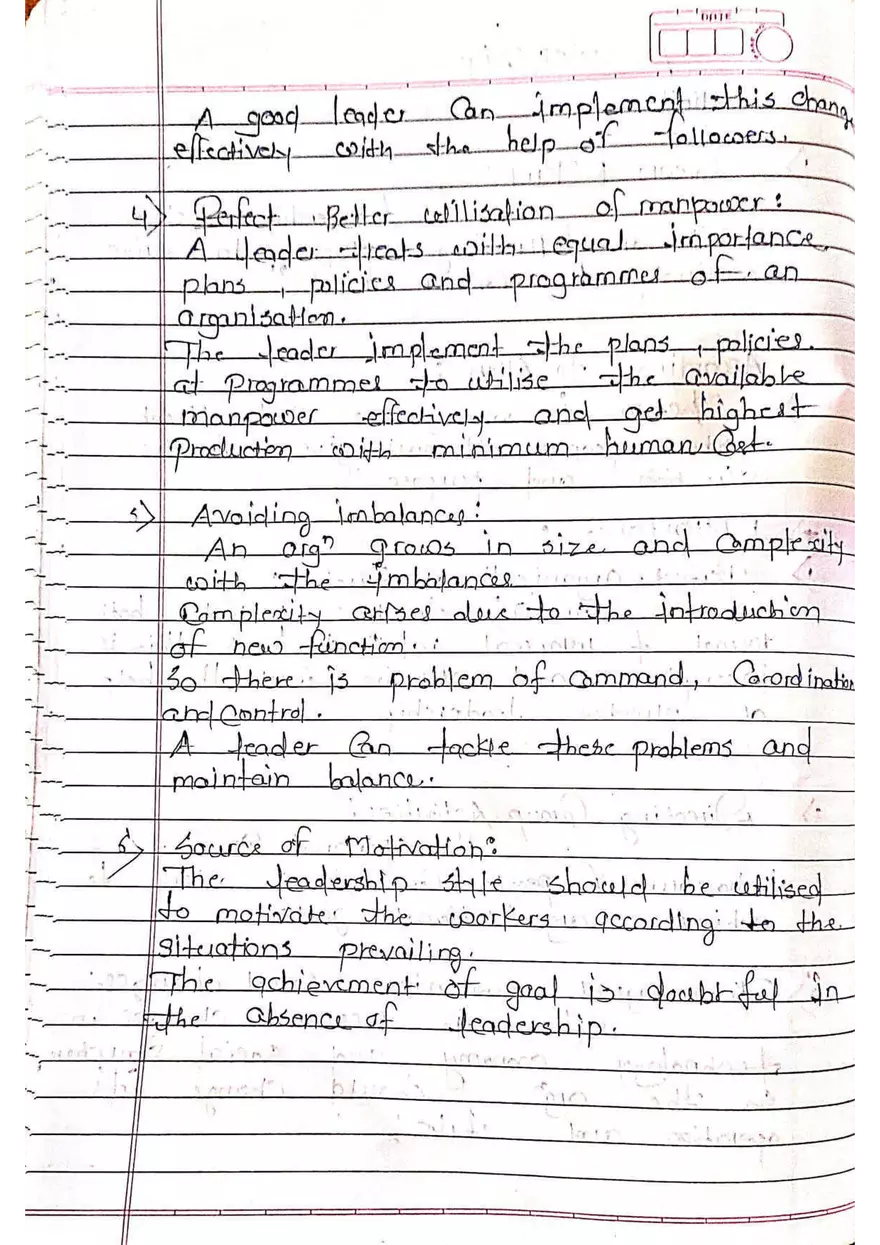 DATE
A good leader can implement this change
effectively with the help of followers.
4) Perfect Better utilisation of manpower:
A leader treats with equal importance,
plans, policies and programmes of an
organisation.
The leader implement the plans, policies.
at programmes to utilise the available
manpower effectively and get highest
Production with minimum human Cost.
5) Avoiding imbalances:
An orgⁿ grows in size and complexity
with the imbalances
Complexity arises due to the introduction
of new function.
So there is problem of command, Coordination
and Control.
A leader can tackle these problems and
maintain balance.
6) Source of Motivation:
The leadership style should be utilised
to motivate the workers according to the
situations prevailing.
The achievement of goal is doubtful in
the absence of leadership.